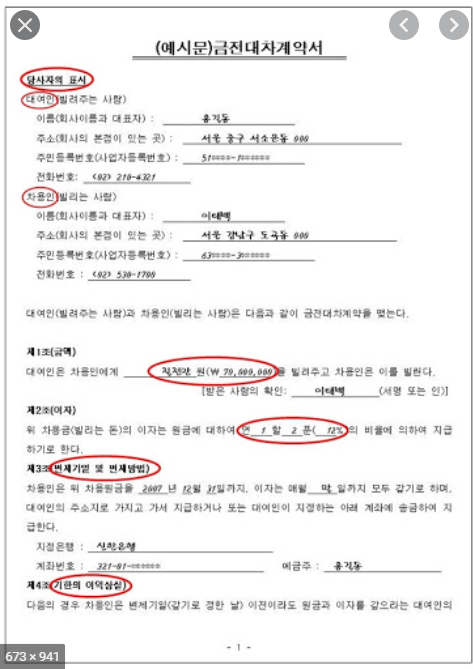 (예시문)금전대차계약서
당사자의 표시
대여인(빌려주는 사람)
이름(회사이름과 대표자) : 홍길동
주소(회사의 본점이 있는 곳) : 서울 중구 서소문동 000
주민등록번호(사업자등록번호) : 51****-1******
전화번호: (02) 210-4321
차용인(빌리는 사람)
이름(회사이름과 대표자) : 이태백
주소(회사의 본점이 있는 곳) : 서울 강남구 도곡동 000
주민등록번호(사업자등록번호) : 63****-3******
전화번호 : (02) 530-1700
대여인(빌려주는 사람)과 차용인(빌리는 사람)은 다음과 같이 금전대차계약을 맺는다.
제1조(금액)
대여인은 차용인에게 원(₩ 70,000,000)을 빌려주고 차용인은 이를 빌린다.
[받은 사람의 확인: 이태백 (서명 또는 인)]
제2조(이자)
위 차용금(빌리는 돈)의 이자는 원금에 대하여 연 1 할 2 푼( 12%)의 비율에 의하여 지급
하기로 한다.
제3조(변제기일 및 변제방법)
차용인은 위 차용원금을 2007 년 12월 31일까지, 이자는 매월 말 일까지 모두 갚기로 하며,
대여인의 주소지로 가지고 가서 지급하거나 또는 대여인이 지정하는 아래 계좌에 송금하여 지
급한다.
지정은행 : 신한은행
계좌번호 : 321-01-****** 예금주 : 홍길동
제4조(기한의 이익상실)
다음의 경우 차용인은 변제기일(갚기로 정한 날) 이전이라도 원금과 이자를 갚으라는 대여인의
- 1 -
673 × 941